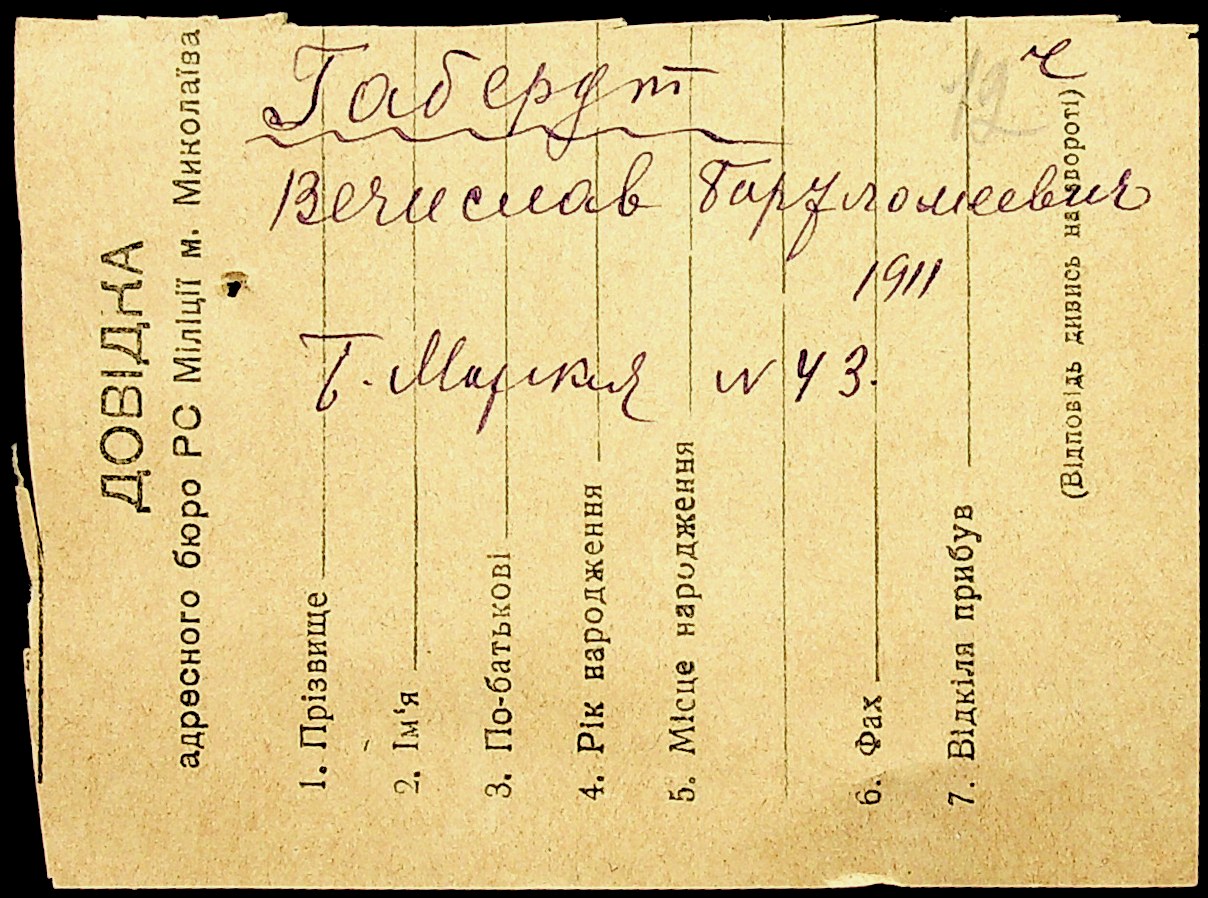 ДОВІДКА
адресного бюро РС Міліції м. Миколаїва
1. Прізвище
2. Ім'я
3. По-батькові
4. Рік народження
5. Місце народження
6. Фах
7. Відкіля прибув
(Відповідь дивись на звороті)
12
Габердт
Вечислав Варфломеевич
1911
Т. № 43.